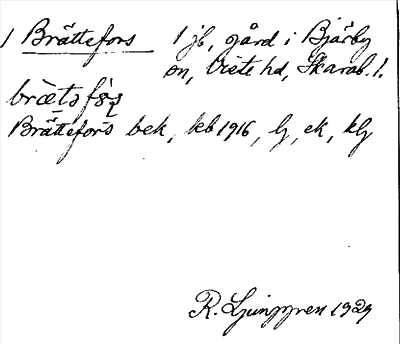 1 Brättefors 1 jb, gård i Bjärby
sn, Viste hd, Skarab. l.
Brättefors bek, kb 1916, lj, ek, klj
R. Ljunggren 1929